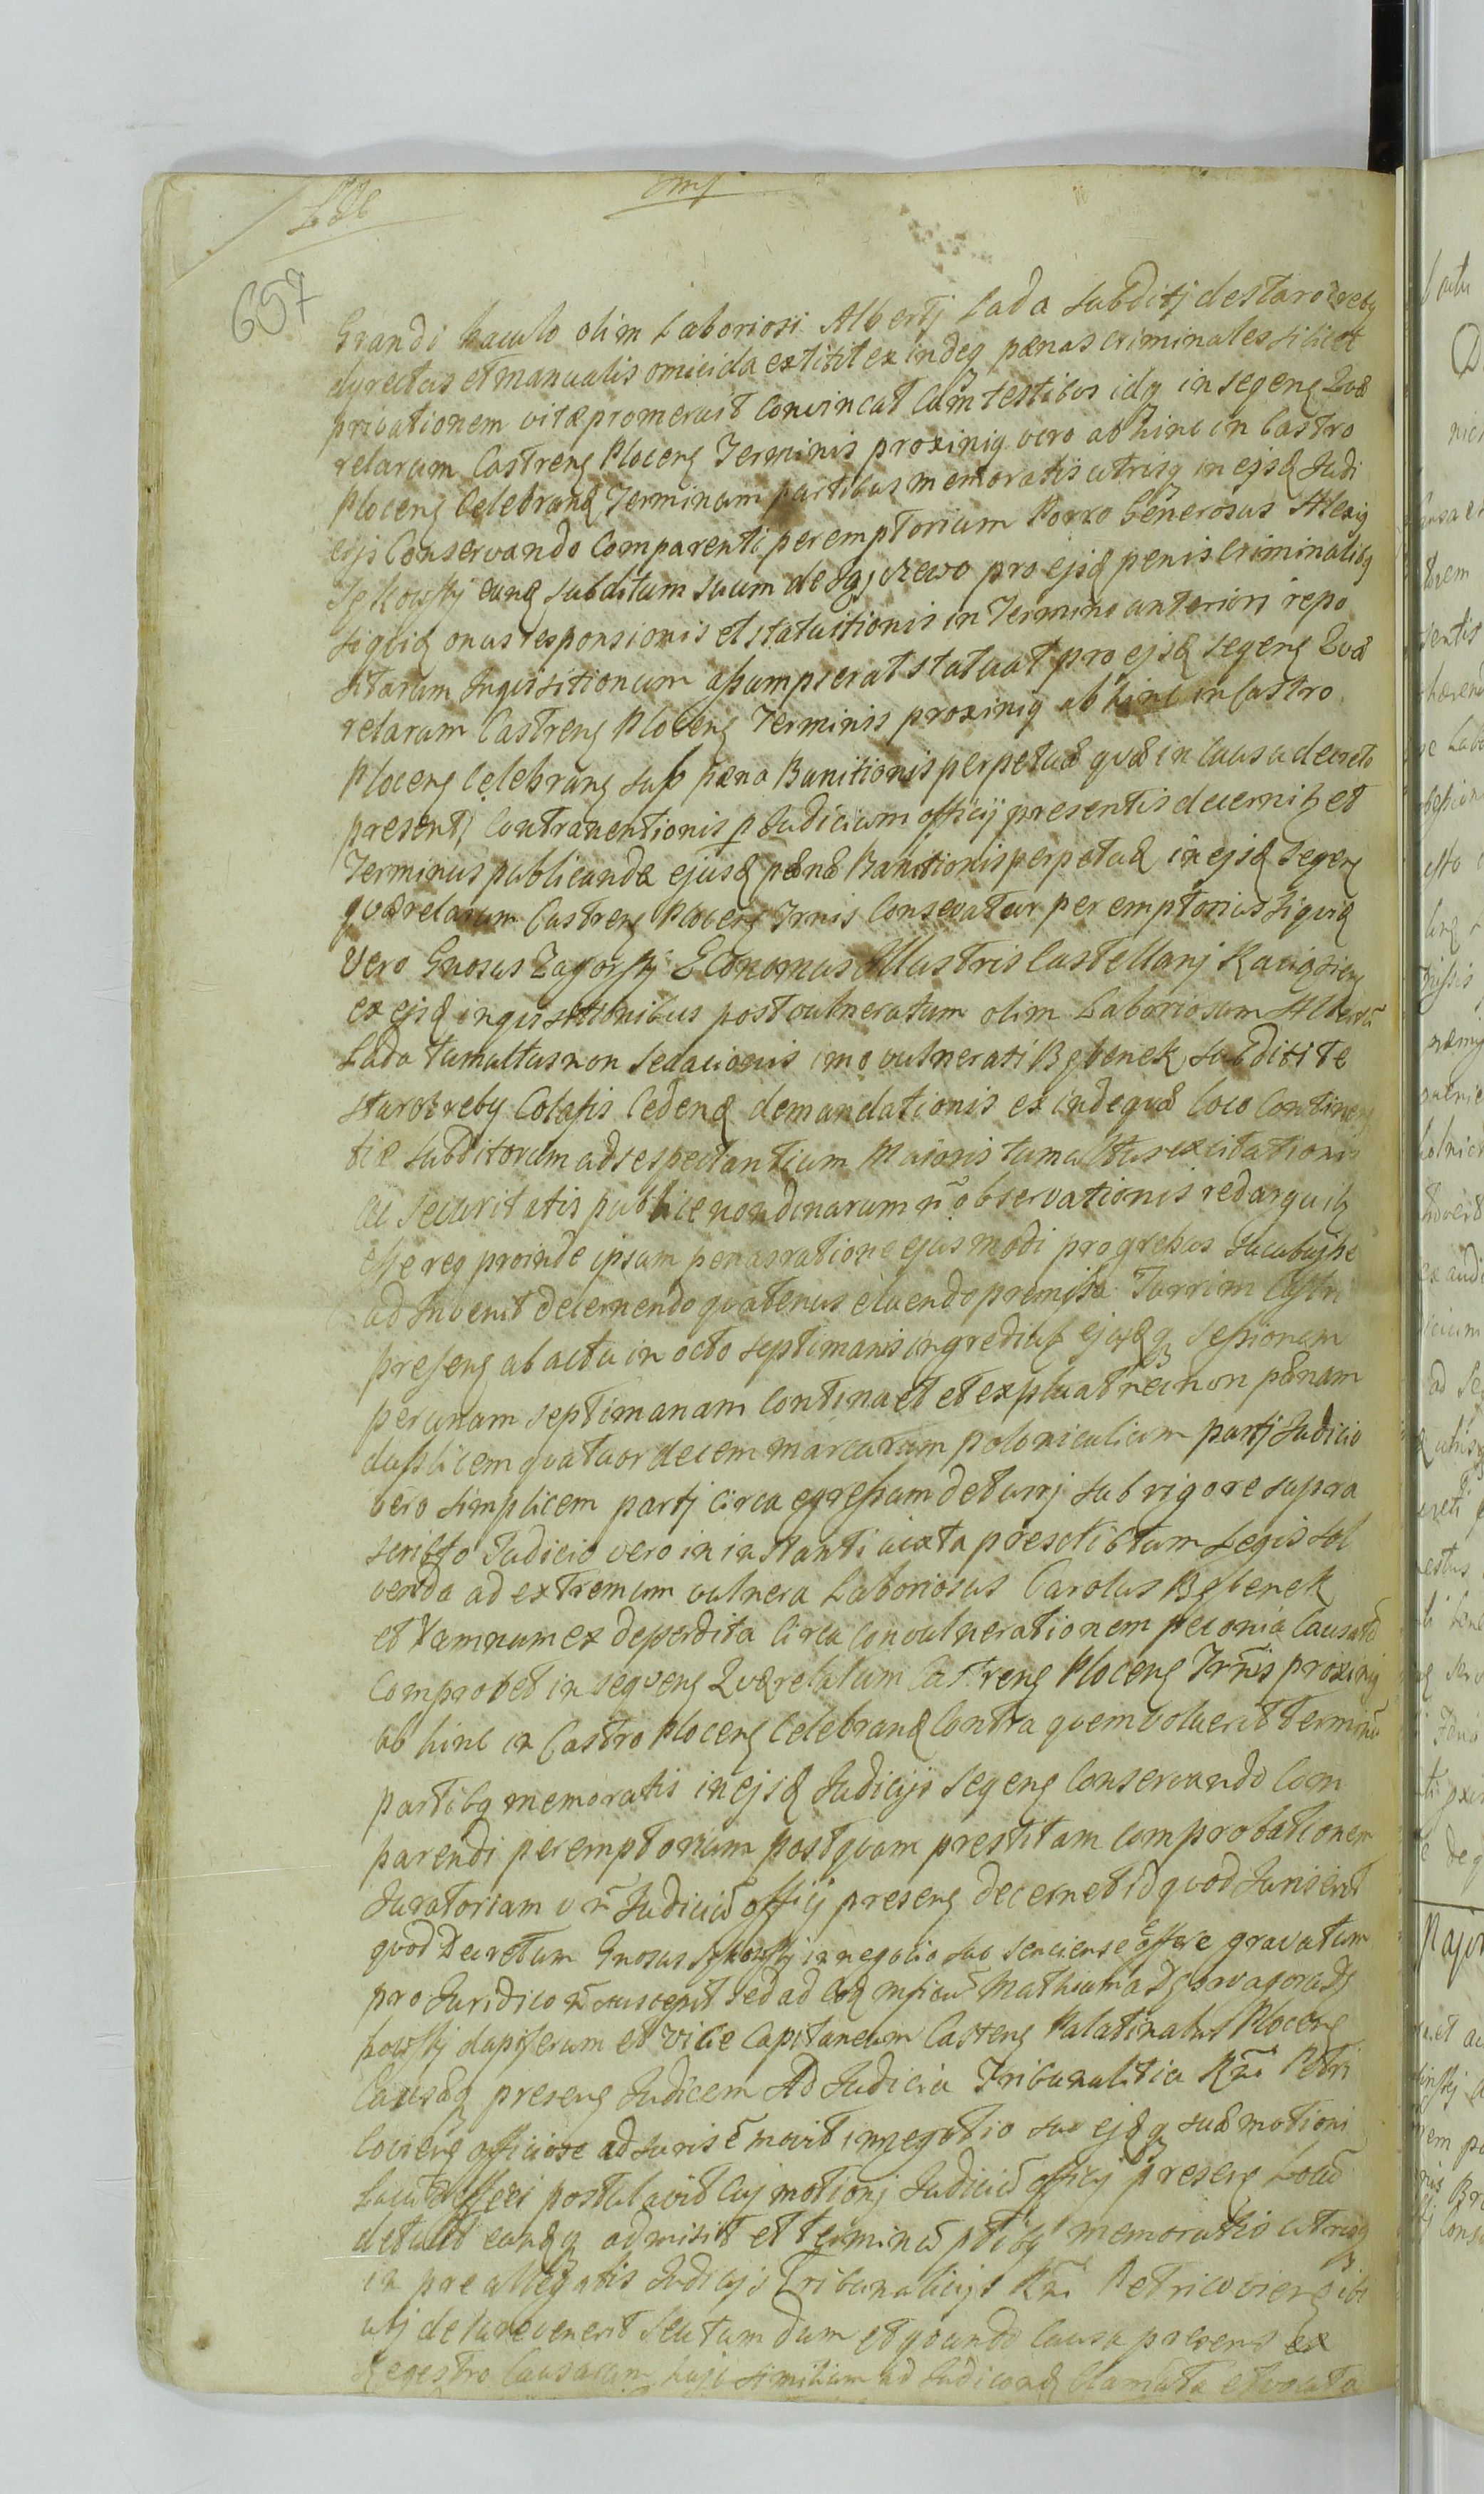 657
Grandi baculo olim Laboriosi Albertj Lada Subditj de Starozreby
dyrectus et manualis omicida extitit exindeq pænas criminales silicet
privationem vitæ promeruit Convincat Cum testibus idq in seqeng Quæ
relarum Castreng Ploceng Terminis proximiq vero ab hinc in Castro
Ploceng Celebrand Terminum partibus memoratis utrisq in ejsd Judi
cijs Conservando Comparenti peremptorium Porro Generosus
eund Subditum suum de pro ejsd penis Criminalibq
siqvid onus responsionis et statuitionis in Termino anteriori repo
sitarum Inqvisitionum assumpserat statuat pro ejsd seqeng Quæ
relarum Castreng Ploceng Terminis proximiq ab hinc in Castro
Ploceng Celebrang sub pæna Banitionis perpetuæ qvæ in Causa decreto
presenti Contraventionis p Judicium officij presentis decernitz et
Terminus publicandæ ejusd pænæ Banitionis perpetuæ in ejsd Seqeng
qværelarum Castreng Ploceng Trnis Consevatur peremptorius siqvid
Vero Gnosus Zagorskj Economus Illustris Castellanj
ex ejsd inqvisitionibus post vulneratum olim Laboriosum Albertu
Lada tumultus non Sedacionis imo vulnerati Bębenek Subditi de
Starozreby Colafis Cedend demandationis exindeqvæ loco Continen
tiæ Subditorum ad se spectantium Maioris tumultus excitationis
ac Securitatis publice nondinarum n observationis redarguitz
esse req proinde ipsum penas ratione ejusmodi progressus Sucubujsse
ad Invenit decernendo qvatenus eluendo premissa Turrim Castri
preseng ab actu in octo septimanis ingrediatz ejusdq sessionem
per unam septimanam Continuet et expleat nec non pænam
duplicem qvatuordecem marcarum polonicalium partj Judicio
vero simplicem partj Circa egressum de turrj sub rigore supra
scripto Judicio vero in instanti iuxta prescribtum Legis sol
venda ad extremum vulnera Laboriosus Carolus Bębenek
et Damnum ex deperdita Circa Convulnerationem peconia Causatu
Comprobet in seqveng Qværelarum Castreng Ploceng Trnis proximiq
ab hinc in Castro Ploceng Celebrand Contra qvem voluerit Terminu
partibq memoratis in ejsd Judicijs Seqeng Conservando Com
parendi peremptorium post qvam prestitam comprobationem
Juratoriam Judiciu officij preseng decernet id qvod Juris erit
qvod Decretum Gnosus in negotio suo senciens e esse gravatum
pro Juridico n suscepit sed ad Mathiam a
dapiferum et Vice Capitaneum Castreng Palatinatus Ploceng
Causæq preseng Judicem Ad Judicia Tribunalitia Rni Petri
coviens officiose ad Juris e movit in negotio suo ejsdq suæ motioni
Locu deferri postulavit Cuj motionj Judiciu officij preseng Locu
detulit eandq admisit et terminu ptibq memoratis utrisq
in pre allegatis Judicijs Tribunalicijs Rni Petricoviensq ibi
ubj de Jure venerit Scutum dum et qvando Causa presens ex
Regestro Causarum huj similium ad Judicand Clamata et vocata